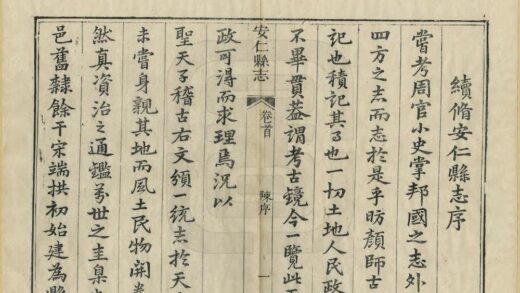 續脩安仁縣志序
嘗考周官小史掌邦國之志外
四方之志而志於是乎昉顏師古
記也積記其事也一切土地人民政
不畢貫葢謂考古鏡今一覽此
政可得而求理焉況以
安仁縣志
卷首
陳序
一
聖天子稽古右文頒一統志於天
未嘗身親其地而風土民物開卷
然真資治之通鑑萬世之圭臬
邑舊隸餘干宋端拱初始建為縣